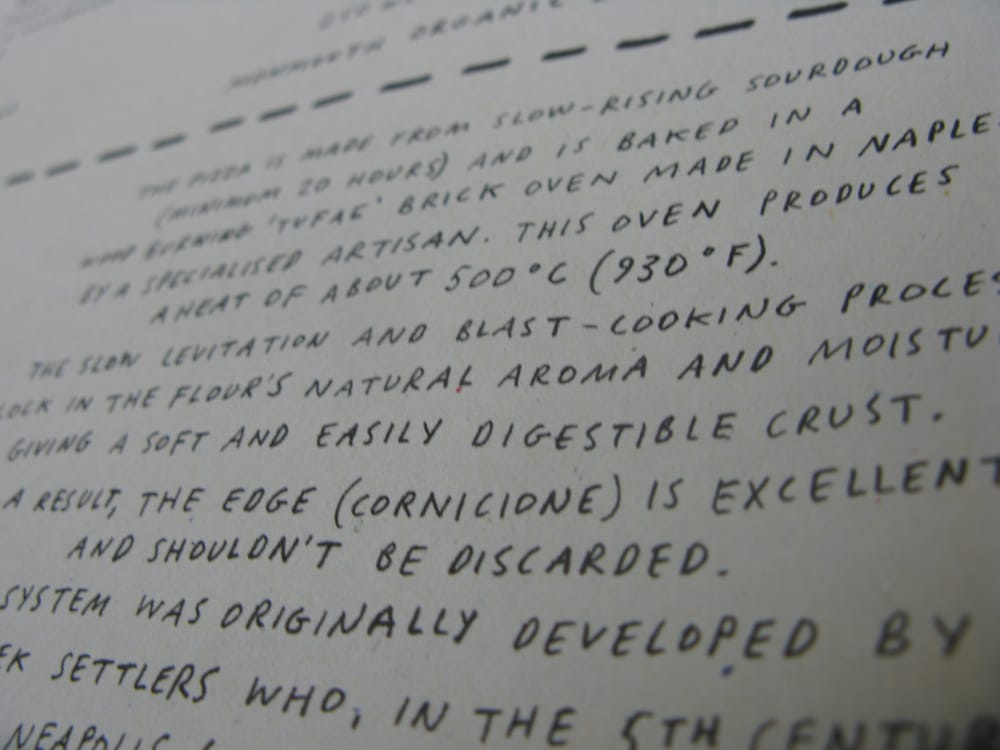 MONMOUTH ORGANIC
THE PIZZA IS MADE FROM SLOW-RISING SOURDOUGH
(MINIMUM 20 HOURS) AND IS BAKED IN A
WOOD BURNING 'TUFAE' BRICK OVEN MADE IN NAPLE
BY A SPECIALISED ARTISAN. THIS OVEN PRODUCES
A HEAT OF ABOUT 500°C (930°F).
THE SLOW LEVITATION AND BLAST-COOKING PROCES
LOCK IN THE FLOUR'S NATURAL AROMA AND MOISTU
GIVING A SOFT AND EASILY DIGESTIBLE CRUST.
A RESULT, THE EDGE (CORNICIONE) IS EXCELLENT
AND SHOULDN'T BE DISCARDED.
SYSTEM WAS ORIGINALLY DEVELOPED BY
EK SETTLERS WHO, IN THE 5TH CENTUR
NEAPOLIS